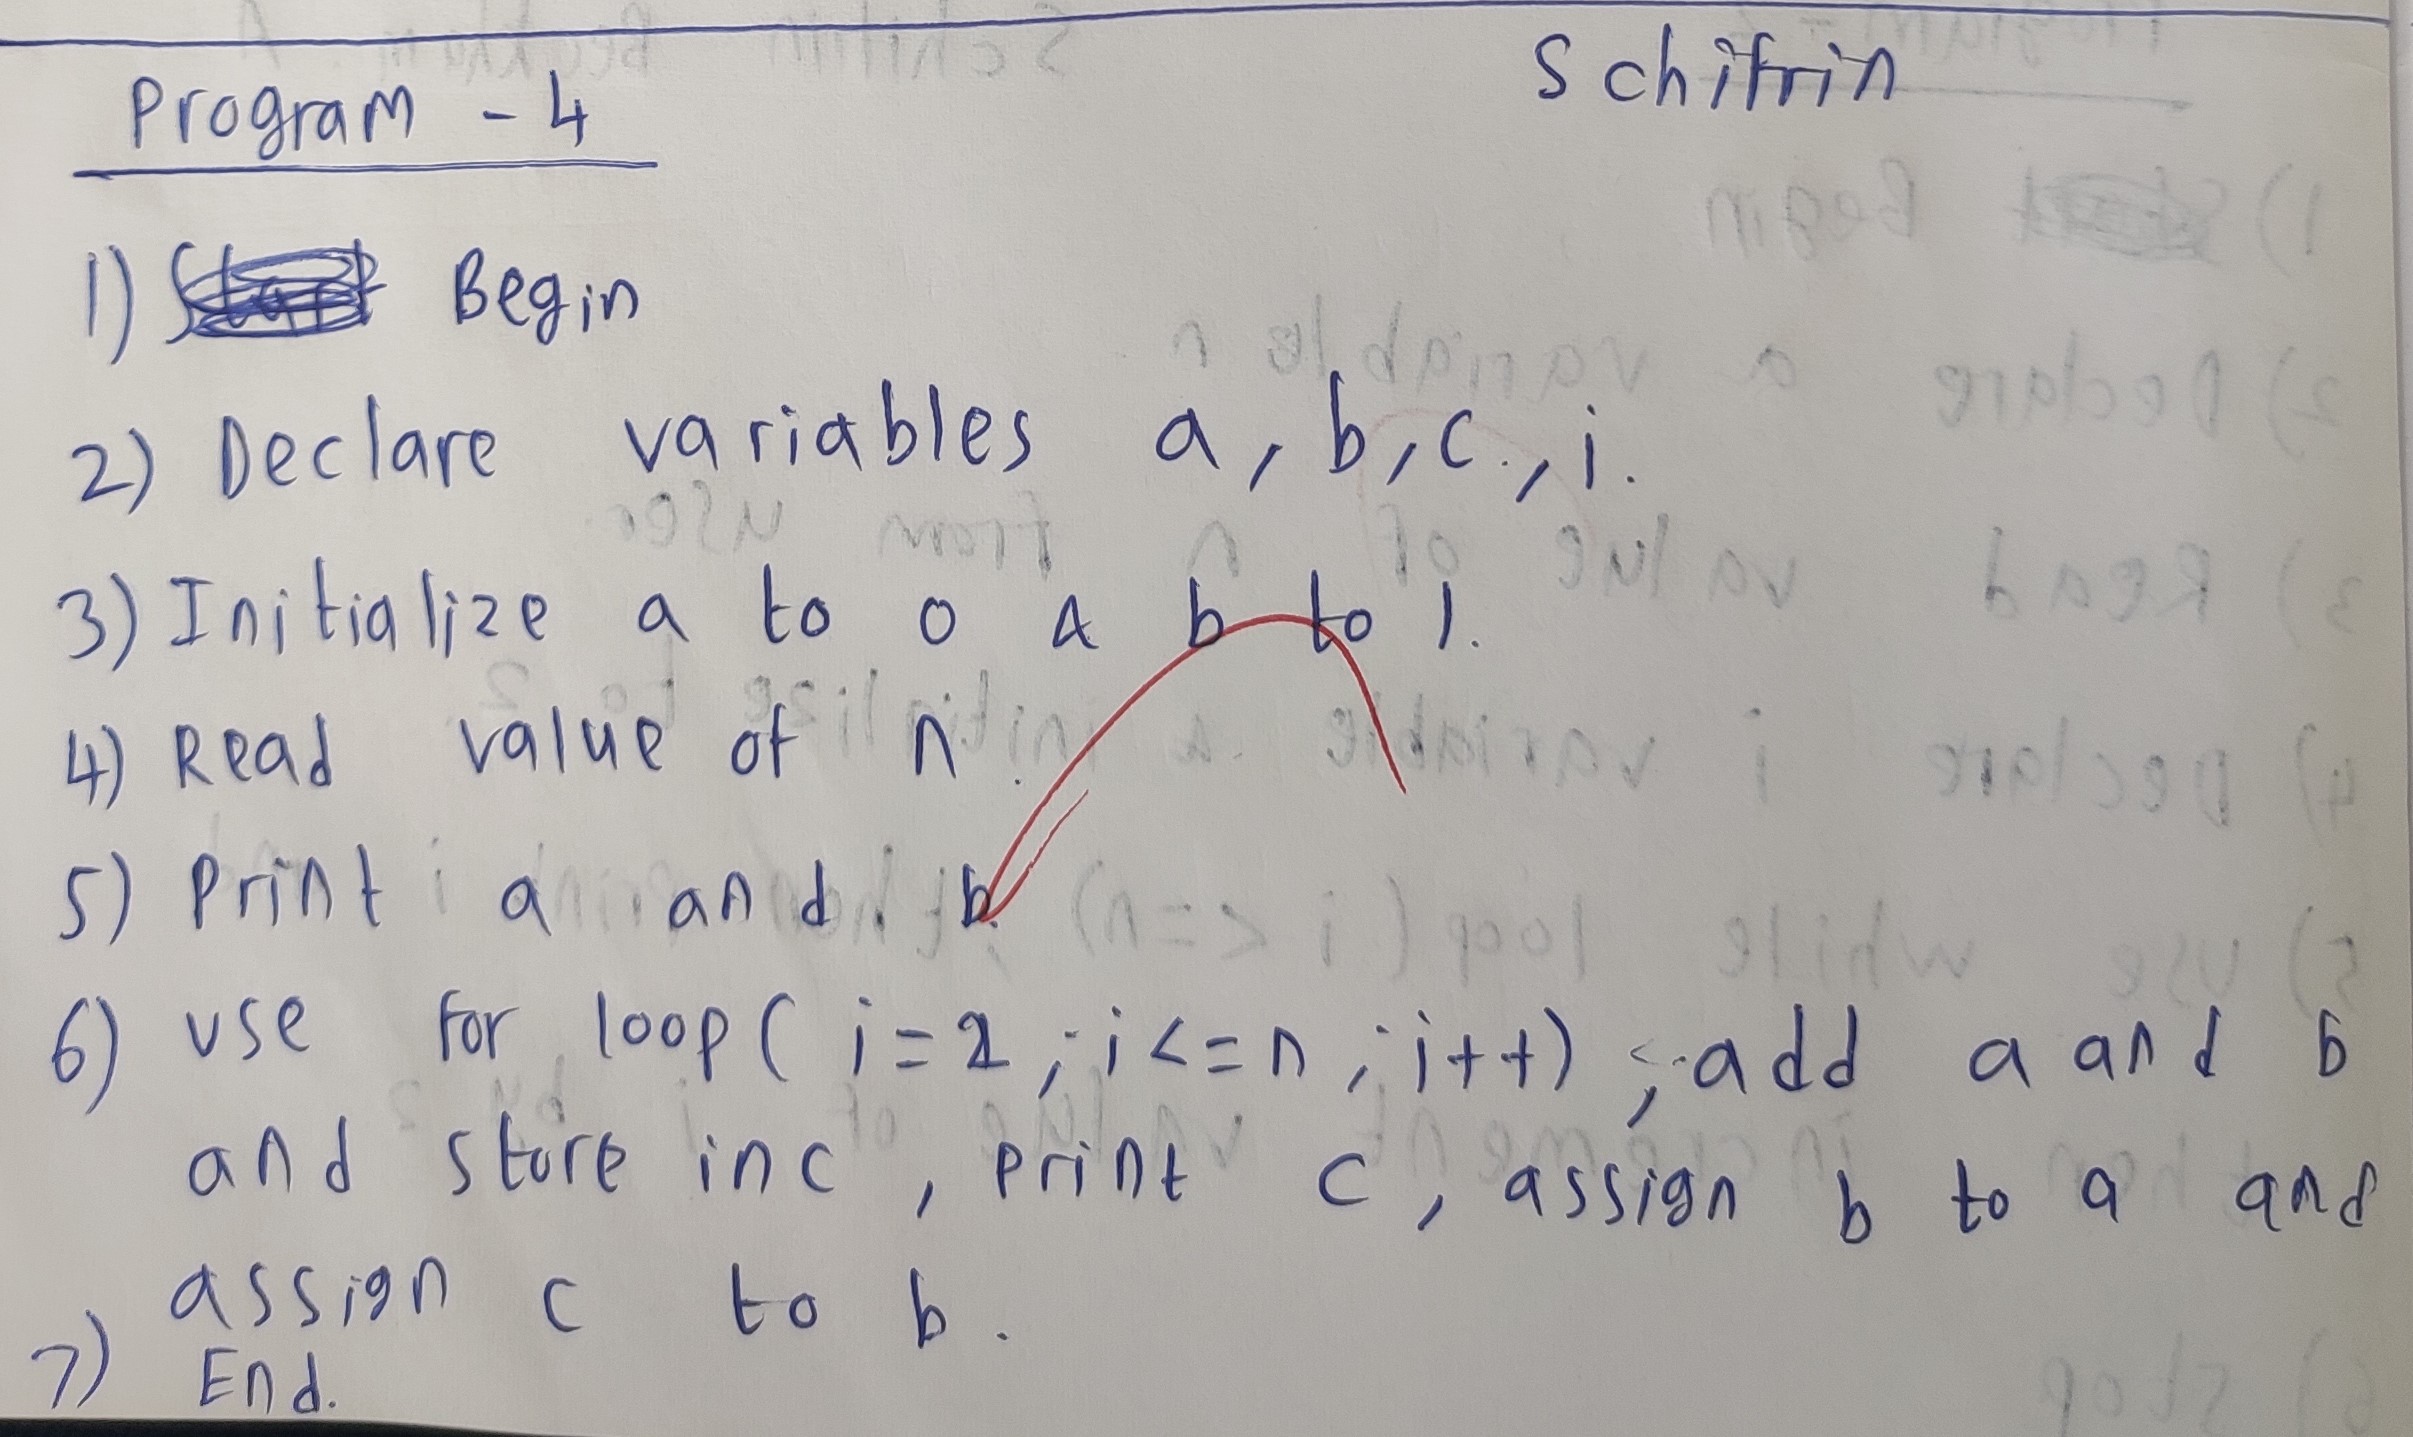 Program - 4
Schifrin
1) Begin
2) Declare variables a, b, c, i.
3) Initialize a to 0 & b to 1.
4) Read value of n.
5) Print a and b.
6) use for loop ( i=2 ; i<=n ; i++) ; add a and b
and store in c , print c , assign b to a and
assign c to b .
7) End.